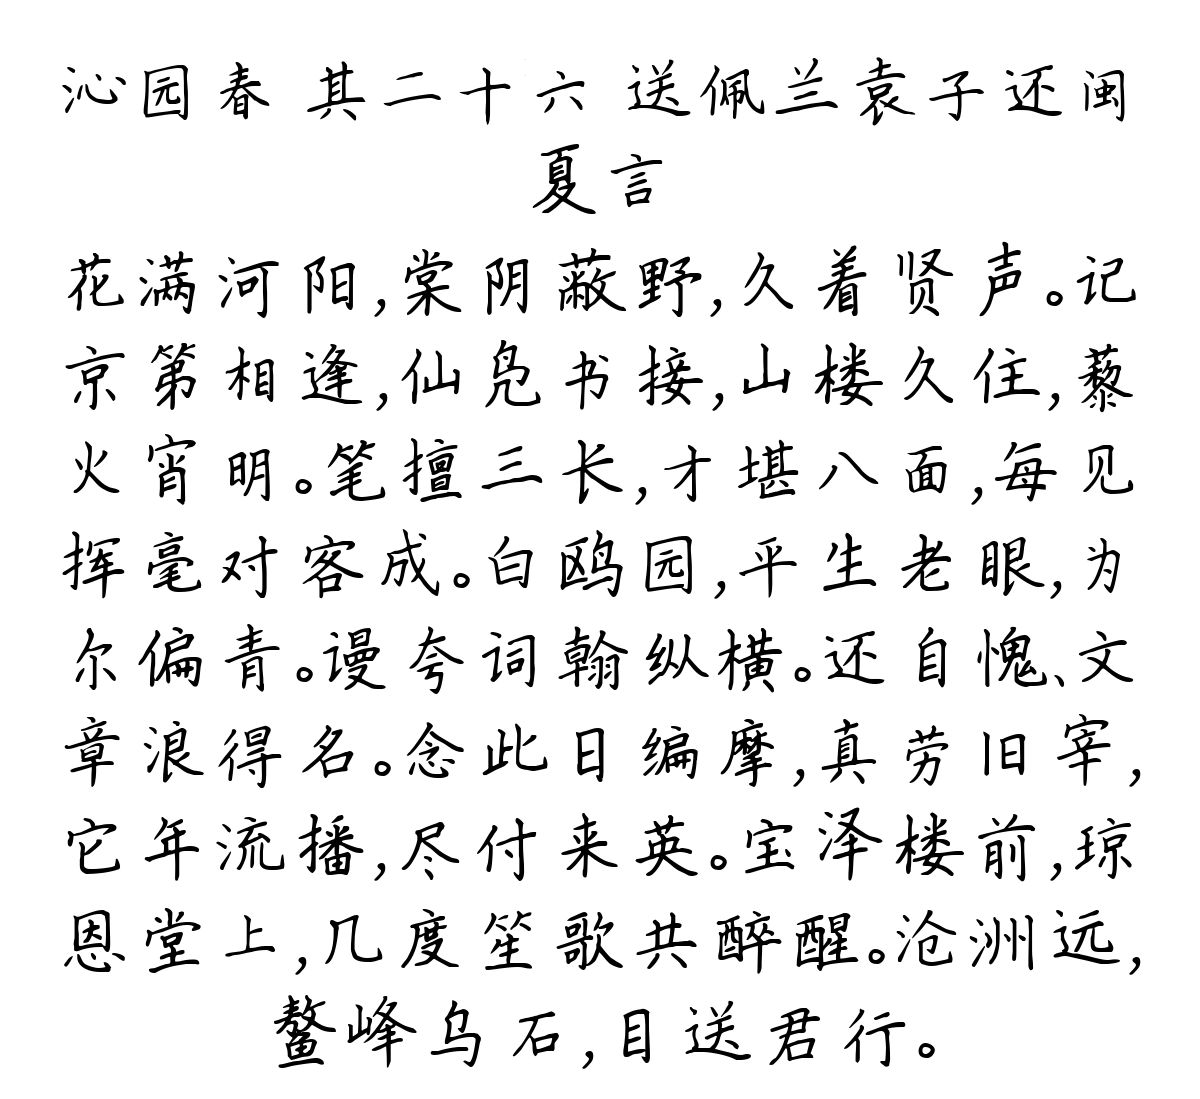 沁园春 其二十六 送佩兰袁子还闽
夏言
花满河阳,棠阴蔽野,久着贤声。记
京第相逢,仙凫书接,山楼久住,藜
火宵明。笔擅三长,才堪八面,每见
挥毫对客成。白鸥园,平生老眼,为
尔偏青。谩夸词翰纵横。还自愧、文
章浪得名。念此日编摩,真劳旧宰,
它年流播,尽付来英。宝泽楼前,琼
恩堂上,几度笙歌共醉醒。沧洲远,
鳌峰乌石,目送君行。